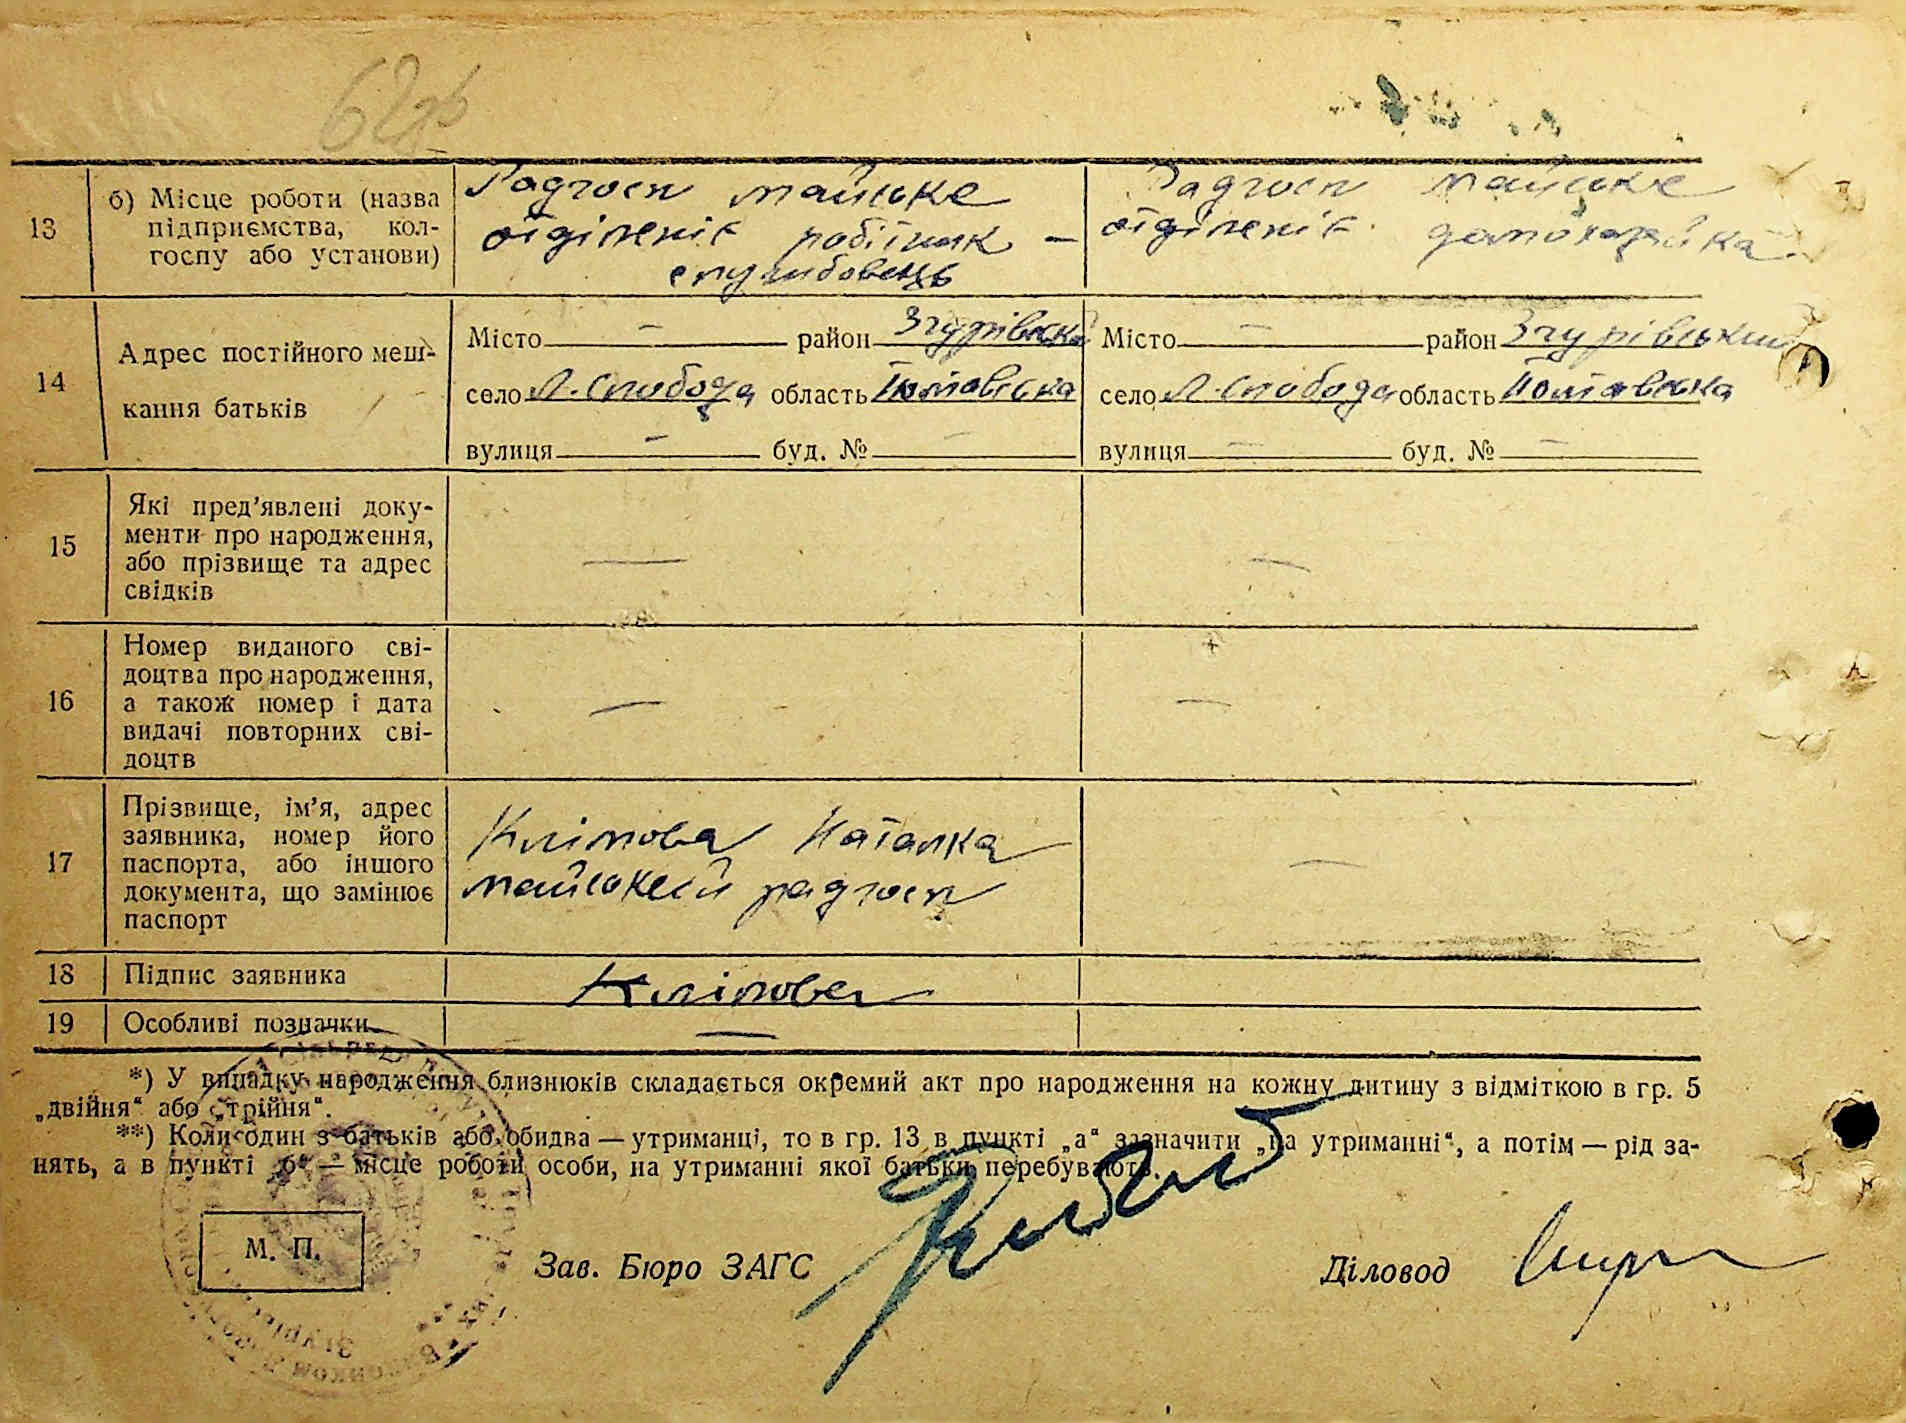 62
13
б) Місце роботи (назва
підприємства, кол-
госпу або установи)
Радгосп майське
отділеніє робітник —
службовець
Радгосп майське
отділеніє домохазяйка
14
Адрес постійного меш-
кання батьків
Місто — район Згурівськ
село Л. Слобода область Полтавська
вулиця — буд. № —
Місто — район Згурівський
село Л. Слобода область Полтавська
вулиця — буд. № —
15
Які пред'явлені доку-
менти про народження,
або прізвище та адрес
свідків
—
—
16
Номер виданого сві-
доцтва про народження,
а також номер і дата
видачі повторних сві-
доцтв
—
—
17
Прізвище, ім'я, адрес
заявника, номер його
паспорта, або іншого
документа, що замінює
паспорт
Клімова Наталка
майський радгосп
—
18 Підпис заявника
Клімова
19 Особливі позначки
—
*) У випадку народження близнюків складається окремий акт про народження на кожну дитину з відміткою в гр. 5
„двійня“ або „трійня“.
**) Коли один з батьків або обидва — утриманці, то в гр. 13 в пункті „а“ зазначити „на утриманні“, а потім — рід за-
нять, а в пункті „б“ — місце роботи особи, на утриманні якої батьки перебувають.
М. П.
Зав. Бюро ЗАГС
Діловод